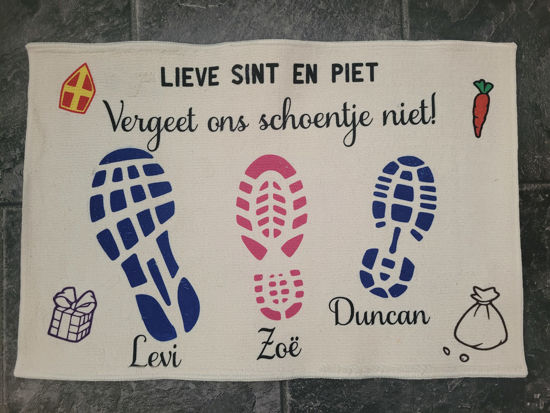 LIEVE SINT EN PIET
Vergeet ons schoentje niet!
Levi
Zoë
Duncan